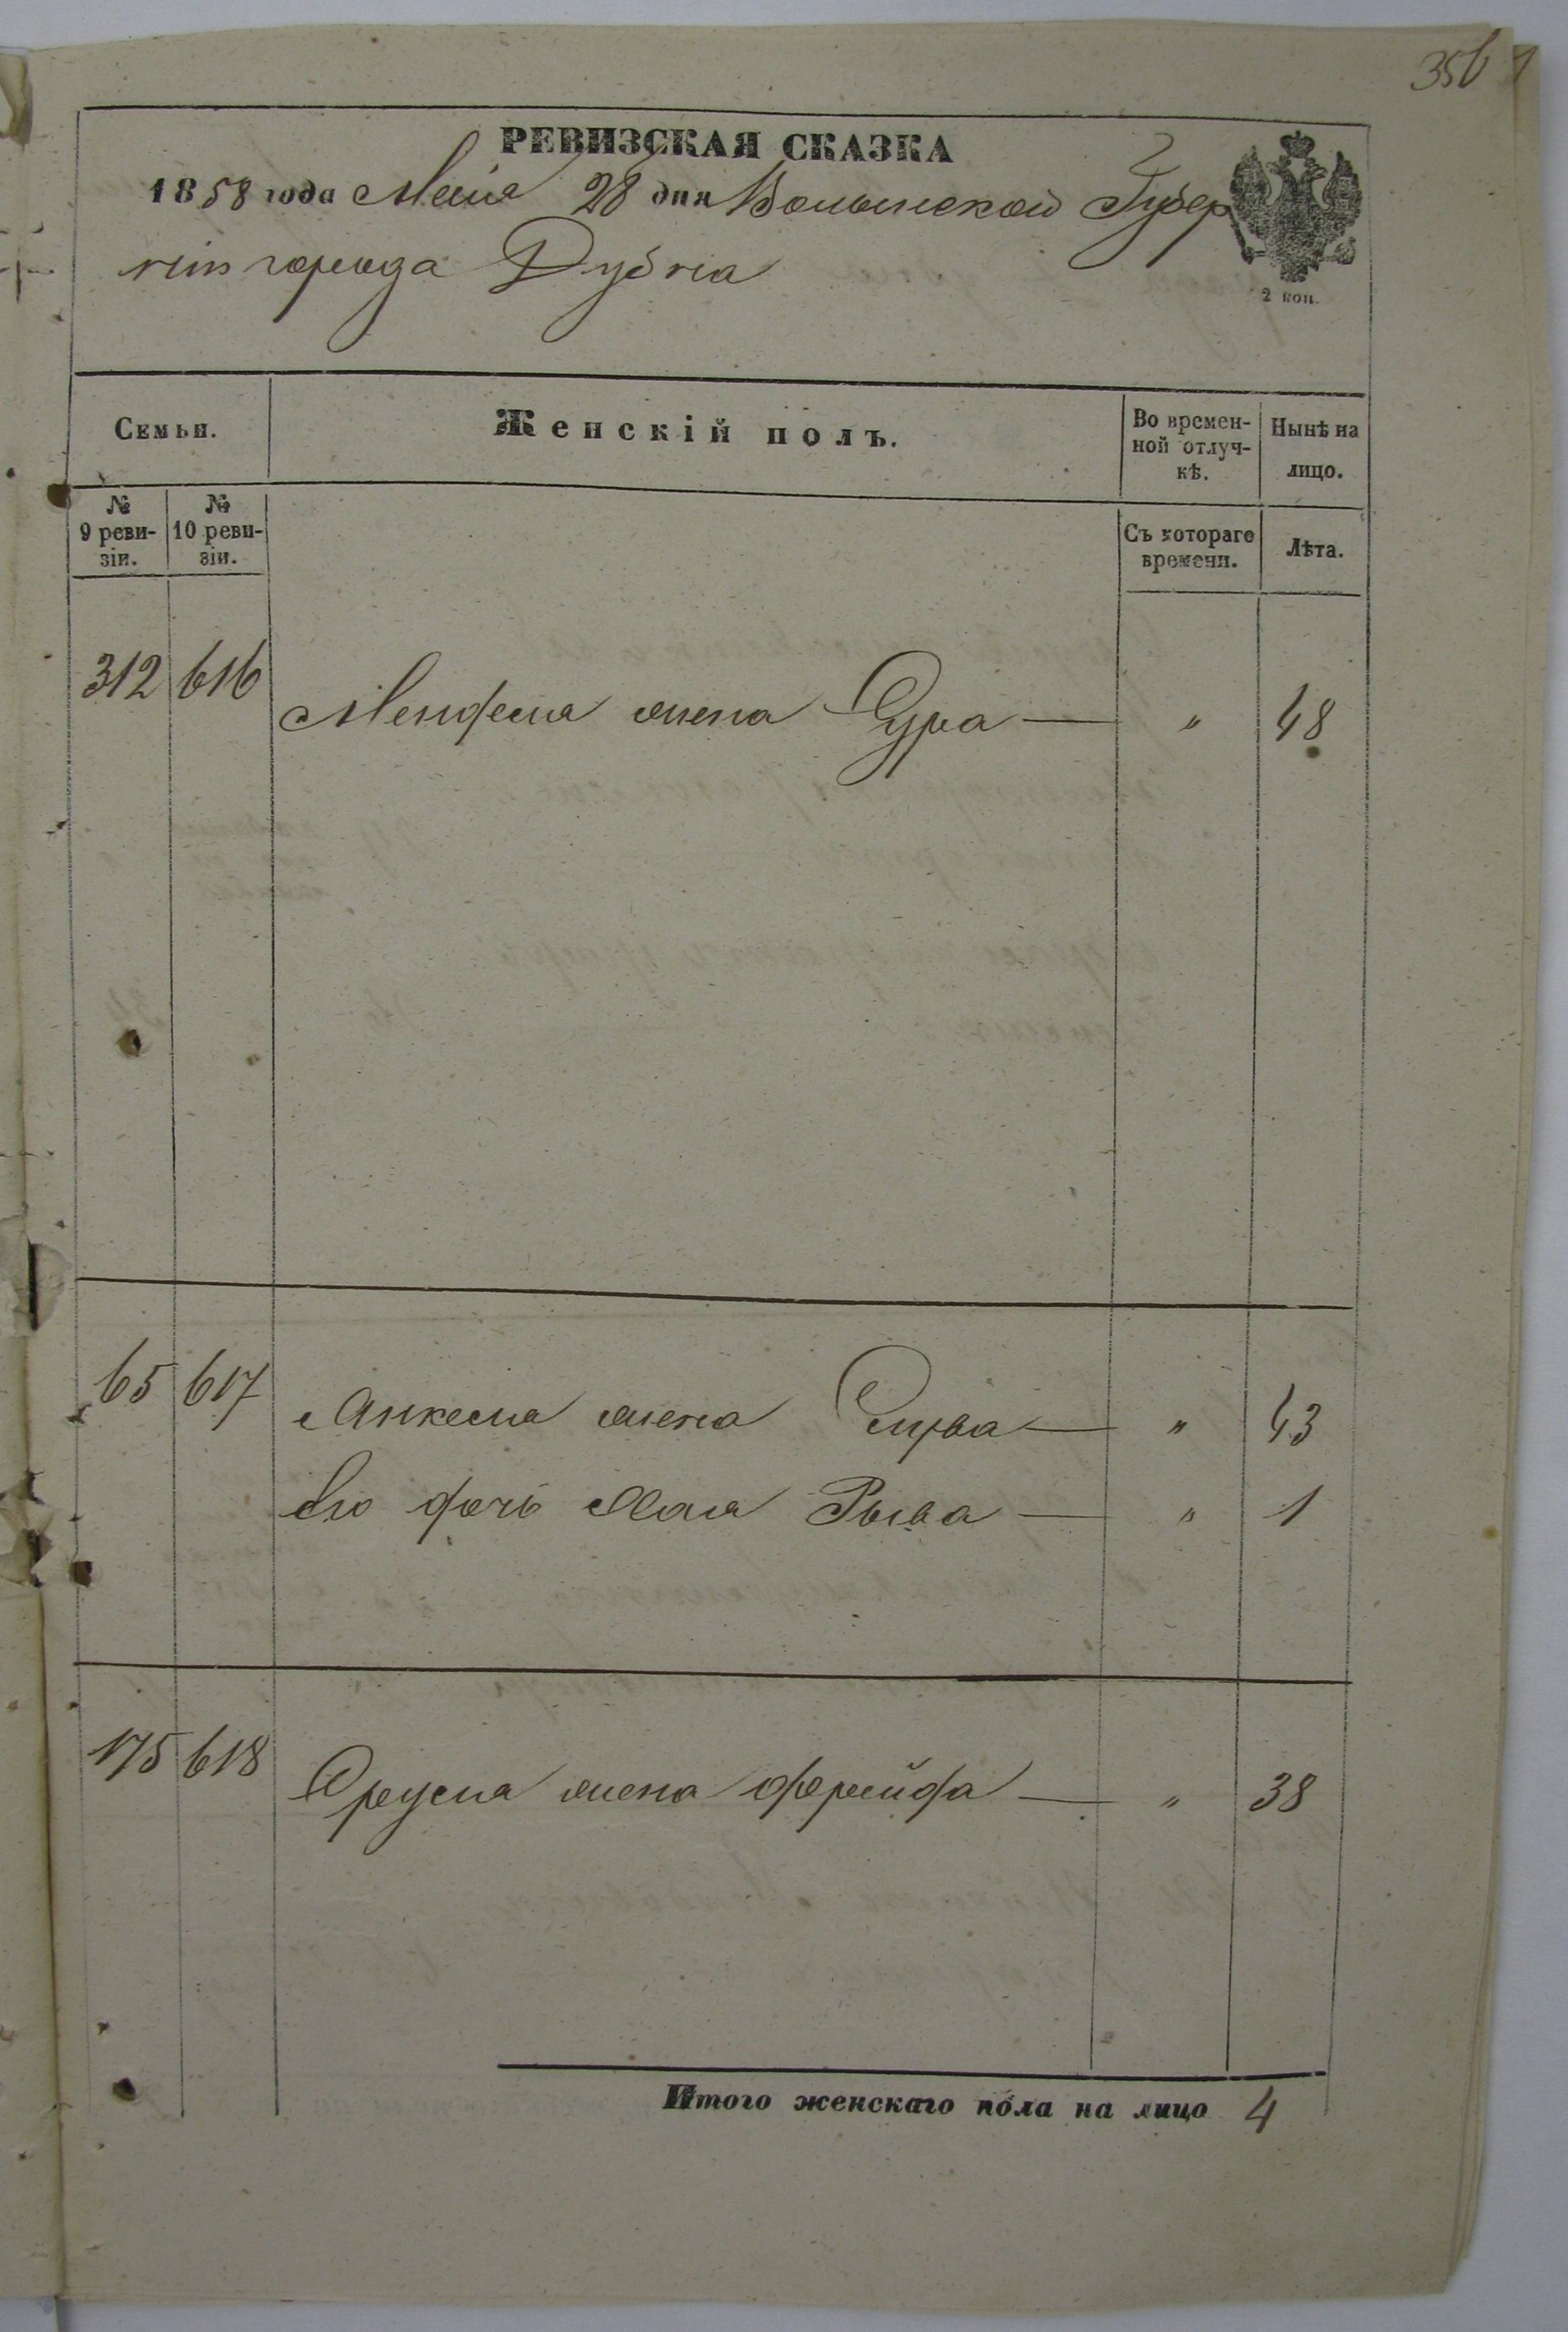 356
РЕВИЗСКАЯ СКАЗКА
1858 года Мая 28 дня Волынской Губер
ніи города Дубна
2 коп.
Семьи.
Женскій полъ.
Во времен-
ной отлуч-
кѣ.
Нынѣ на
лицо.
№
9 реви-
зіи.
№
10 реви-
зіи.
Съ котораго
времени.
Лѣта.
312 616 жена Сура — " 48
65 617 жена — " 43
Его дочь Хая Рыва — " 1
175 618 жена Фрейда — " 38
Итого женскаго пола на лицо 4